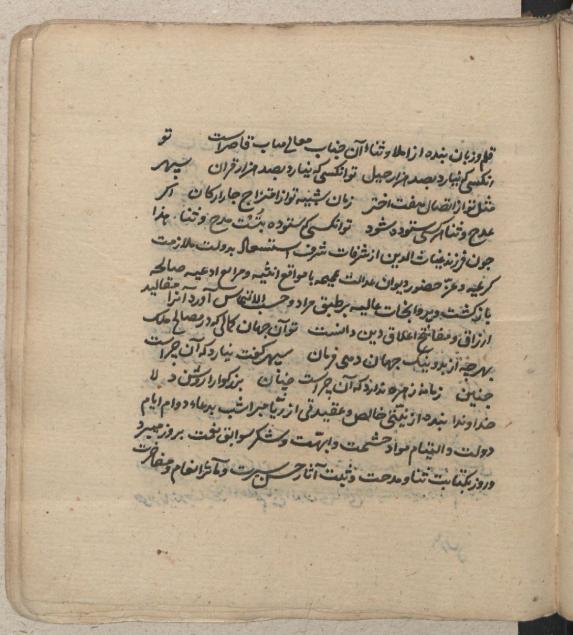 قلم و زبان بنده از املا و ثناء آن جناب معالی مآب قاصر است تو
آنکسی که نیارد بصد هزار حیل تو آنکسی که نیارد بصد هزار قران سپهر
مثل تو از اتصال هفت اختر زمان شبیه تو از امتزاج چار ارکان اگر
بمدح و ثنا هر کسی ستوده شود تو آنکسی که ستوده بتست مدح و ثنا هذا
چون فرزند غیاث الدین از شرفات شرف استسعاد بدولت ملازمت
کرعیه و عز حضور دیوان عدالت عمیمه با مواقع اثنیه و مراسم ادعیه صالحه
بازگشت و پروانجات عالیه بر طبق مراد و حسب الالتماس آورد آنرا مقالید
ارزاق و مفاتیح اغلاق دین دانست تو آن جهان کمالی که در مصالح ملک
بهر چه آز بد و نیک جهان دهی فرمان سپهر گفت نیارد که آن چراست
چنین زمانه زهره ندارد که آن چراست چنان بزرگوارا روشن د لا
خداوندا بنده از نیتی خالص و عقیدتی از ریا مبرا شب بدعاء دوام ایام
دولت و التیام مواد حشمت و ابهت و شکر سوابق نعمت بروز میبرد
و روز بکتابت ثنا و مدحت و تثبیت آثار حسن سیرت و مآثر انعام و مفاخرت